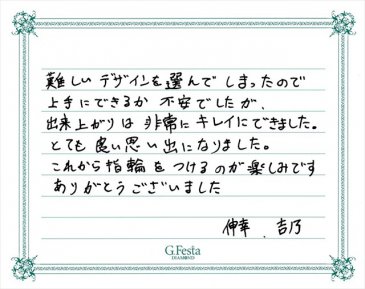 難しいデザインを選んでしまったので
上手にできるか不安でしたが、
出来上がりは非常にキレイにできました。
とても良い思い出になりました。
これから指輪をつけるのが楽しみです
ありがとうございました
伸幸 . 吉乃
G.Festa
DIAMOND